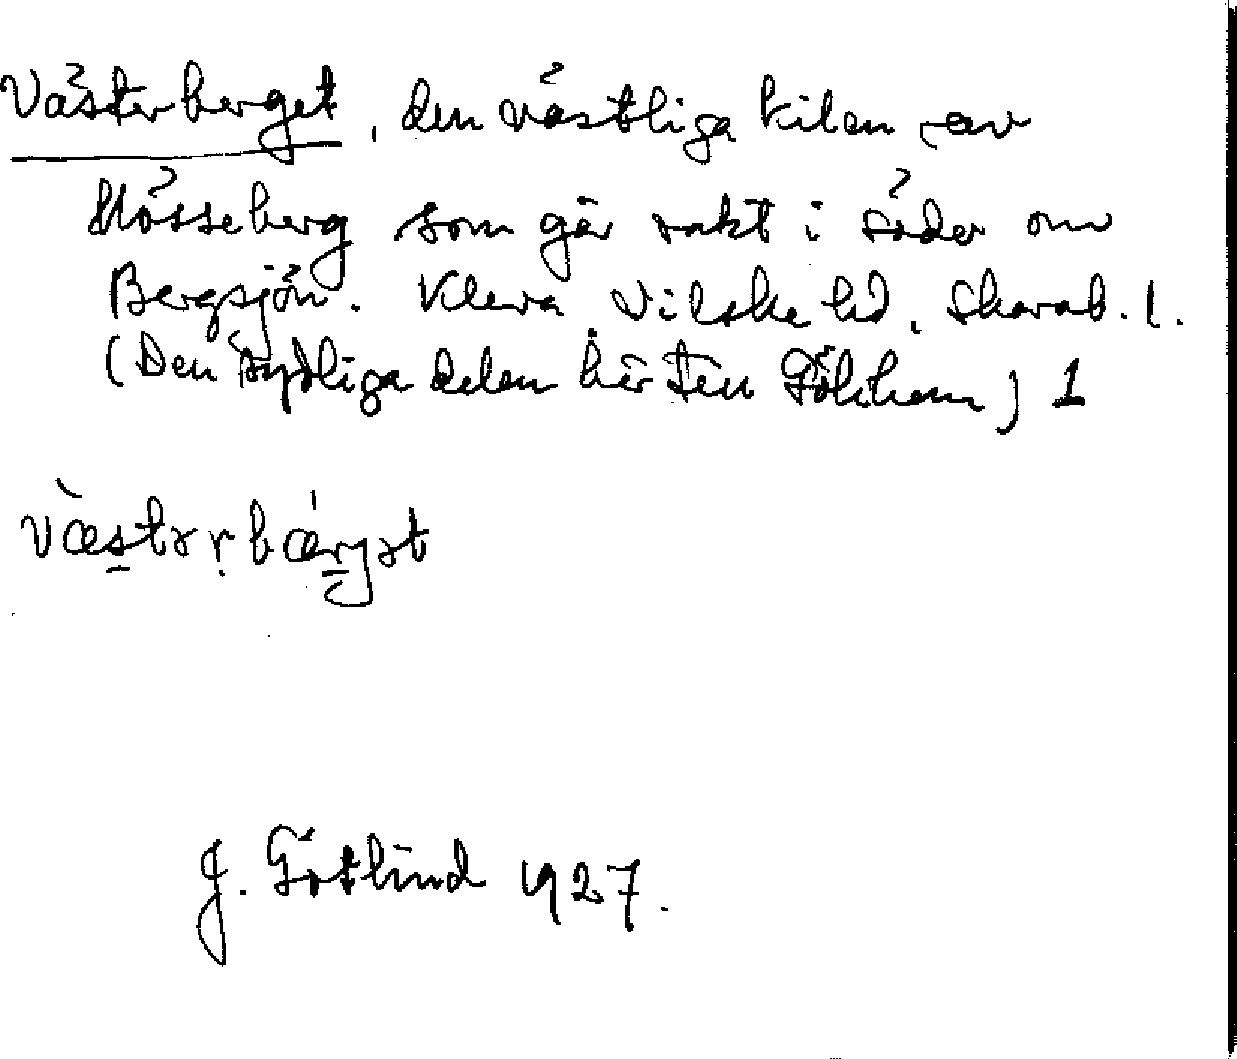 Västerberget, den västliga kilen av
Mösseberg som går rakt i söder om
Bergsjön. Kleva Vilske hd, Skarab. l.
(Den sydliga delen hör till Gökhem) 1
væstərbærgət
J. Götlind 1927.